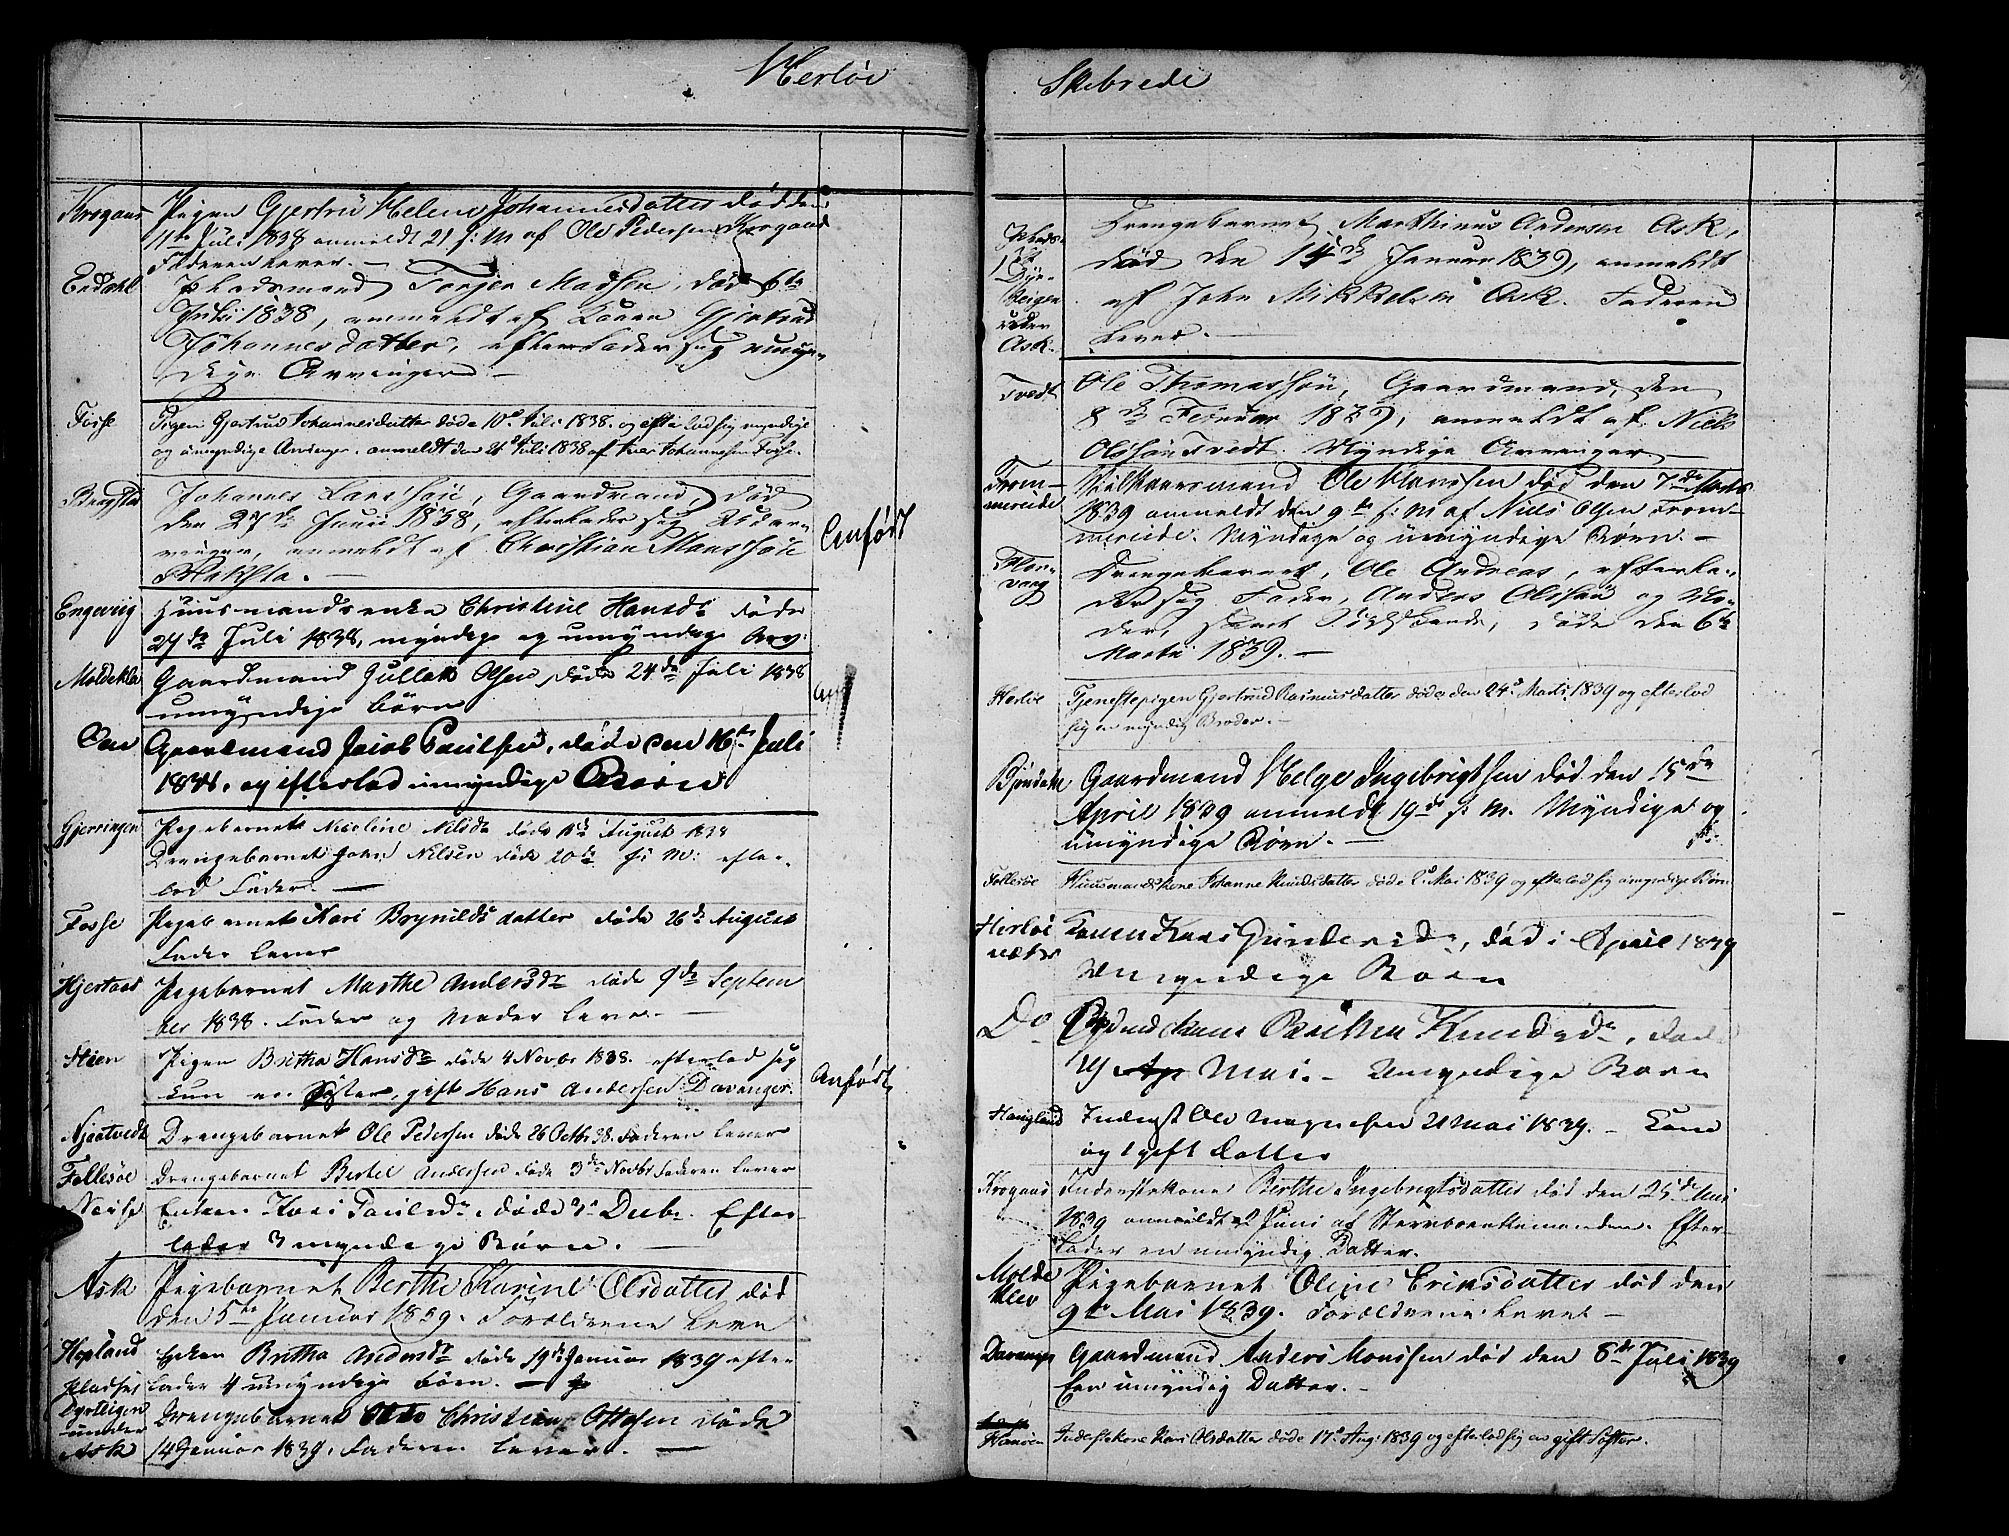 Herløe
Krogaas Pigen Gjertrü Helene Johannesdatter død den
11te Juli 1838 anmeldt 21 s: M af Ole Pedersen Krogaas
Faderen lever. —
Pladsmand Torjer Madsen, død 6te
Juli 1838, anmeldt af Konen Gjertrud
Johannesdatter, efterlader sig umyn
dige Arvinger —
Fosse Pigen Gjertrud Johannesdatter døde 10de Juli 1838. og efterlod sig myndige
og umyndige Arvinger. anmeldt den 21de Juli 1838 af Iver Johannesen Fosse.
Johannes Larssøn, Gaardmand, død
den 27de Juni 1838, efterlader sig
anmeldt af Christian Monssøn
Anført
Engevig Huusmandsenke Christine Hansdr døde
27de Juli 1838, myndige og umyndige Arv:
Moldeklev Gaardmand Gullak Olsen døde 24de Juli 1838
umyndige børn
Gaardmand Jacob Paulsen, døde den 16te Juli
1838. og efterlod umyndige Børn
Gjerringen Pigebarnet Niseline Nilsdr døde August 1838
Drengebarnet Johs Nilsen døde 20de s: M: efter-
lod Fader. —
Fosse Pigebarnet Kari Brynildsdatter døde 26de August
Fader lever
Hjertaas Pigebarnet Marthe Andersdr døde 9de Septem
ber 1838. Fader og Moder lever. —
Steen Pigen Britha Hansdr døde 4 Novbr 1838. efterlod sig
kun en Søster, gift Hans Andersen Davanger.
Anført
Njøtvedt Drengebarnet Ole Pedersen døde 26 Octbr 38. Faderen lever
Follesøe Drengebarnet Bertel Andersen døde 3de Novbr Faderen lever
Enken Kari Paulsdr. døde 3de Decbr. Efter-
lader 3 myndige Børn. —
Ask Pigebarnet Berthe Karine Olsdatter død
den 5te Januar 1839. Forældrene leve
Hopland Enken Britha Andersdr døde 19de Januar 1839 efter-
lader 4 umyndige børn. —
Pladset
Dyrteigen
under
Ask
Drengebarnet Otto Christian Ottosen døde
14 Januar 1839. Faderen lever. —
Skibrede
Pladset
Dyr-
teigen
under
Ask.
Drengebarnet Marthinus Andersen Ask,
død den 14de Januar 1839, anmeldt
af John Mikkelsen Ask. Faderen
lever. —
Tvedt Ole Thomassøn, Gaardmand, den
8de Februar 1839, anmeldt af Niels
Olssøn Tvedt. Myndige Arvinger —
Trom-
mereide
Vilkaarsmand Ole Monssen død den 7de Marts
1839 anmeldt den 9de s: M af Niels Olsen Trom-
mereide. Myndige og umyndige Børn. —
Flor-
vaag
Drengebarnet, Ole Andreas, efterla-
der sig Fader, Anders Olssøn og Mo-
der, samt Sødskende, døde den 6te
Marts 1839. —
Herløe Tjenestepigen Gjertrud Rasmusdatter døde den 24de Marts 1839 og efterlod
sig en myndig Broder. —
Gaardmand Helge Ingebrigtsen død den 15de
April 1839 anmeldt 19de s: M. Myndige og
umyndige Børn. —
Follesøe Huusmandskone Johanne Knudsdatter døde 2de Mai 1839 og efterlod sig umyndige Børn
Herløe
Konen Kari Gundersdr, død i April 1839
Umyndige Børn
Do Knudsdr, døde
19 Ap Mai. — Umyndige Børn
Hougland Inderst Ole Magnesen 21 Mai 1839. — Kone
og 1 gift datter
Krogaas Inderstekone Berthe Ingebrigtsdatter død den 25de Mai
1839 anmeldt 2 Juni af Stervboenkemanden. Efter-
lader en umyndig Datter.
Molde
klev
Pigebarnet Oline Eriksdatter død den
9de Mai 1839. Forældrene lever —
Davanger Gaardmand Anders Monssen død den 8de Juli 1839
Een umyndig Datter. —
Inderstekone Kari Olsdatter døde 17de Aug: 1839 og efterlod sig en gift Søster.